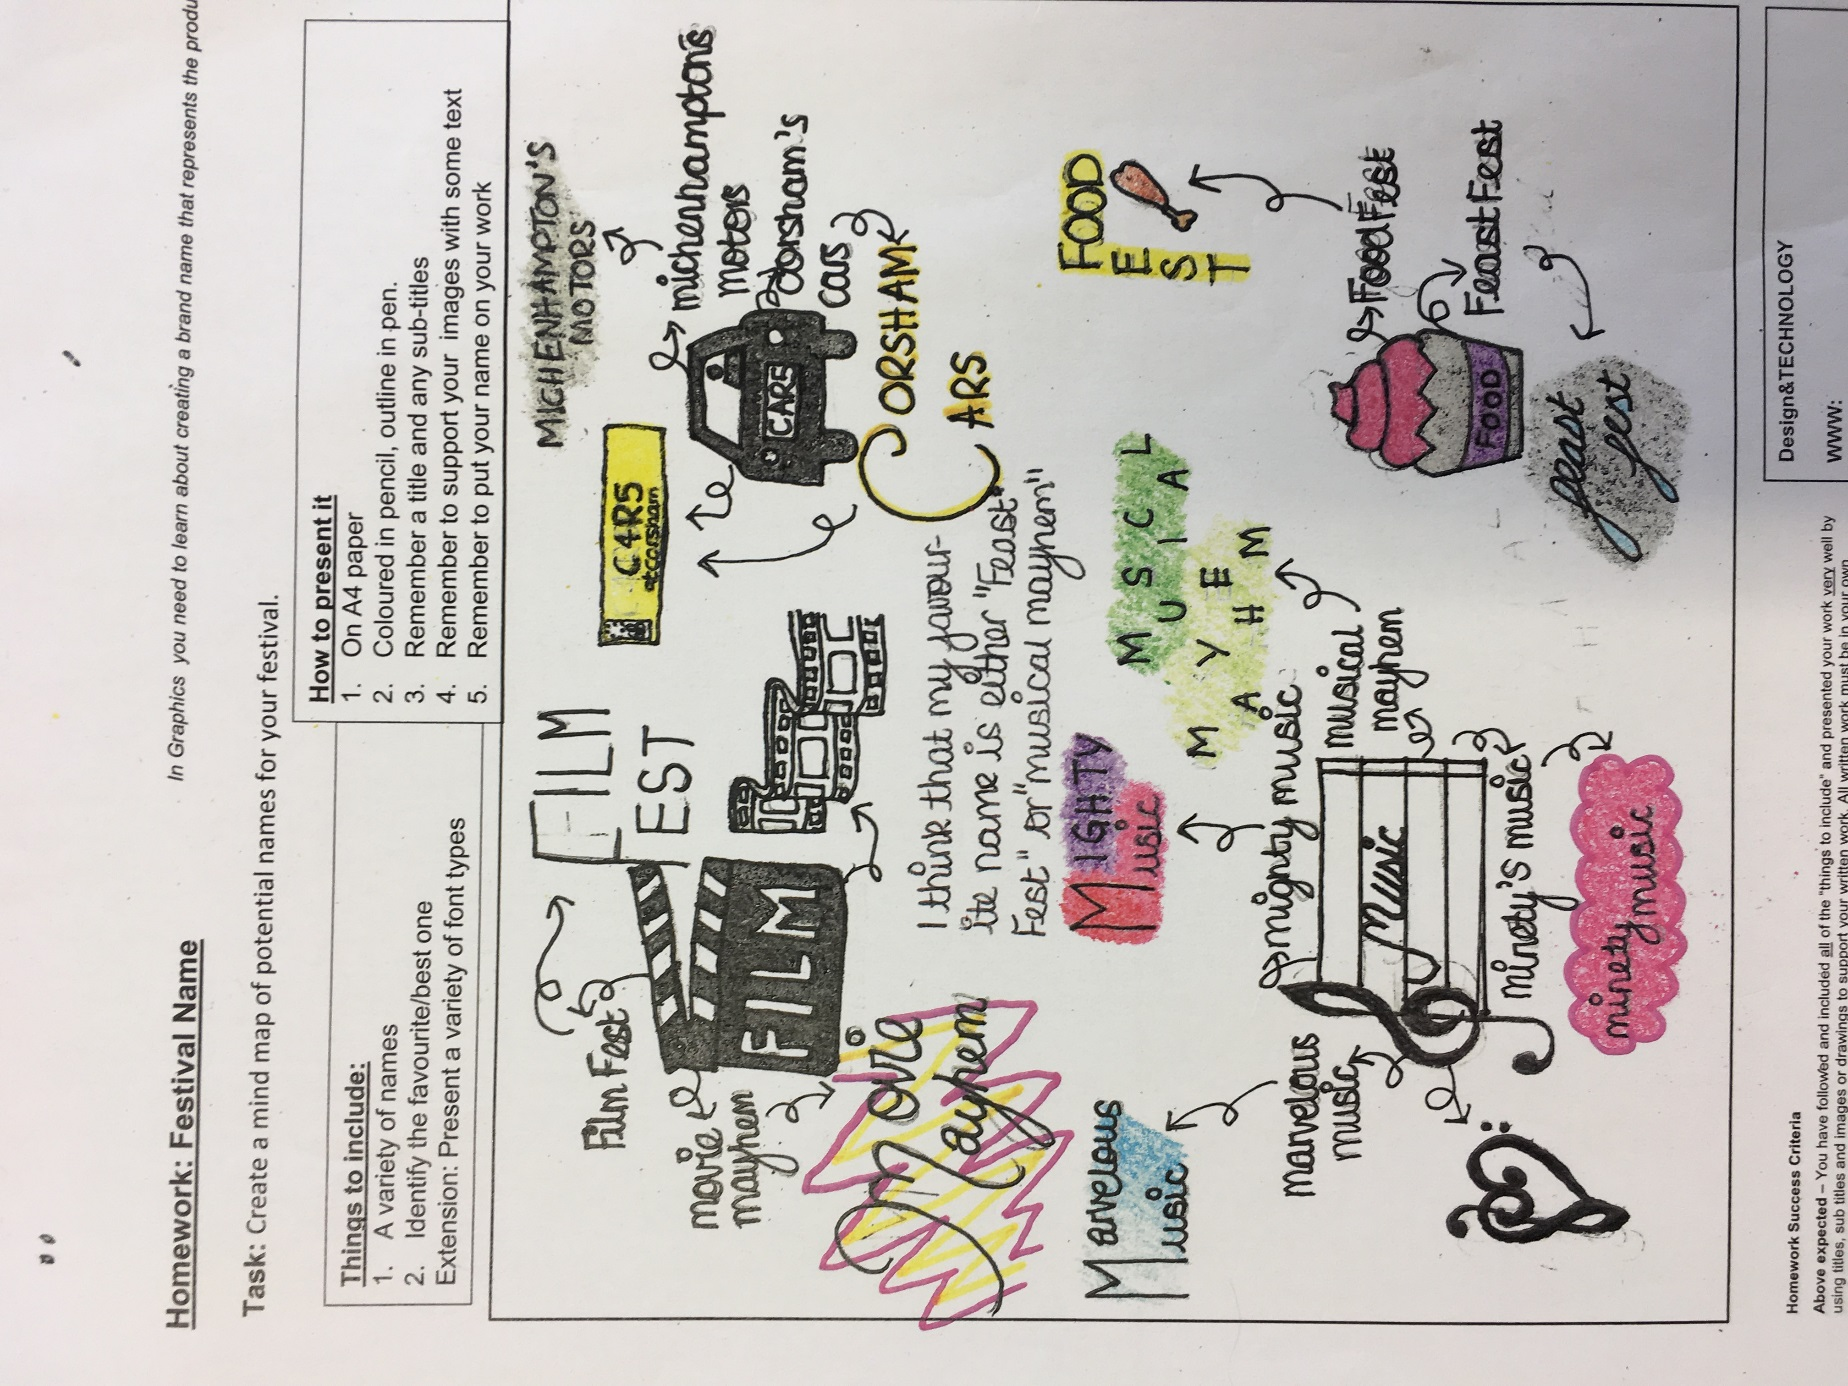 Homework: Festival Name
In Graphics you need to learn about creating a brand name that represents the
Task: Create a mind map of potential names for your festival.
Things to include:
1. A variety of names
2. Identify the favourite/best one
Extension: Present a variety of font types
How to present it
1. On A4 paper
2. Coloured in pencil, outline in pen.
3. Remember a title and any sub-titles
4. Remember to support your images with some text
5. Remember to put your name on your work
FILM
EST
Film Fest
FILM
movie
mayhem
Movie
Mayhem
MICHENHAMPTON'S
MOTORS
C4R5
@corsham
michenhampton's
motors
CARS
corsham's
cars
CORSHAM
CARS
I think that my favour-
ite name is either "Feast
Fest" or "musical mayhem"
Marvelous
Music
MIGHTY
Music
MUSICAL
MAYHEM
FOOD
EST
marvelous
music
mighty music
musical
mayhem
Music
ninety's music
ninety music
Food Fest
Feast Fest
FOOD
feast
fest
Homework Success Criteria
Above expected – You have followed and included all of the "things to include" and presented your work very well by
using titles, sub titles and images or drawings to support your written work. All written work must be in your own
Design&TECHNOLOGY
WWW: